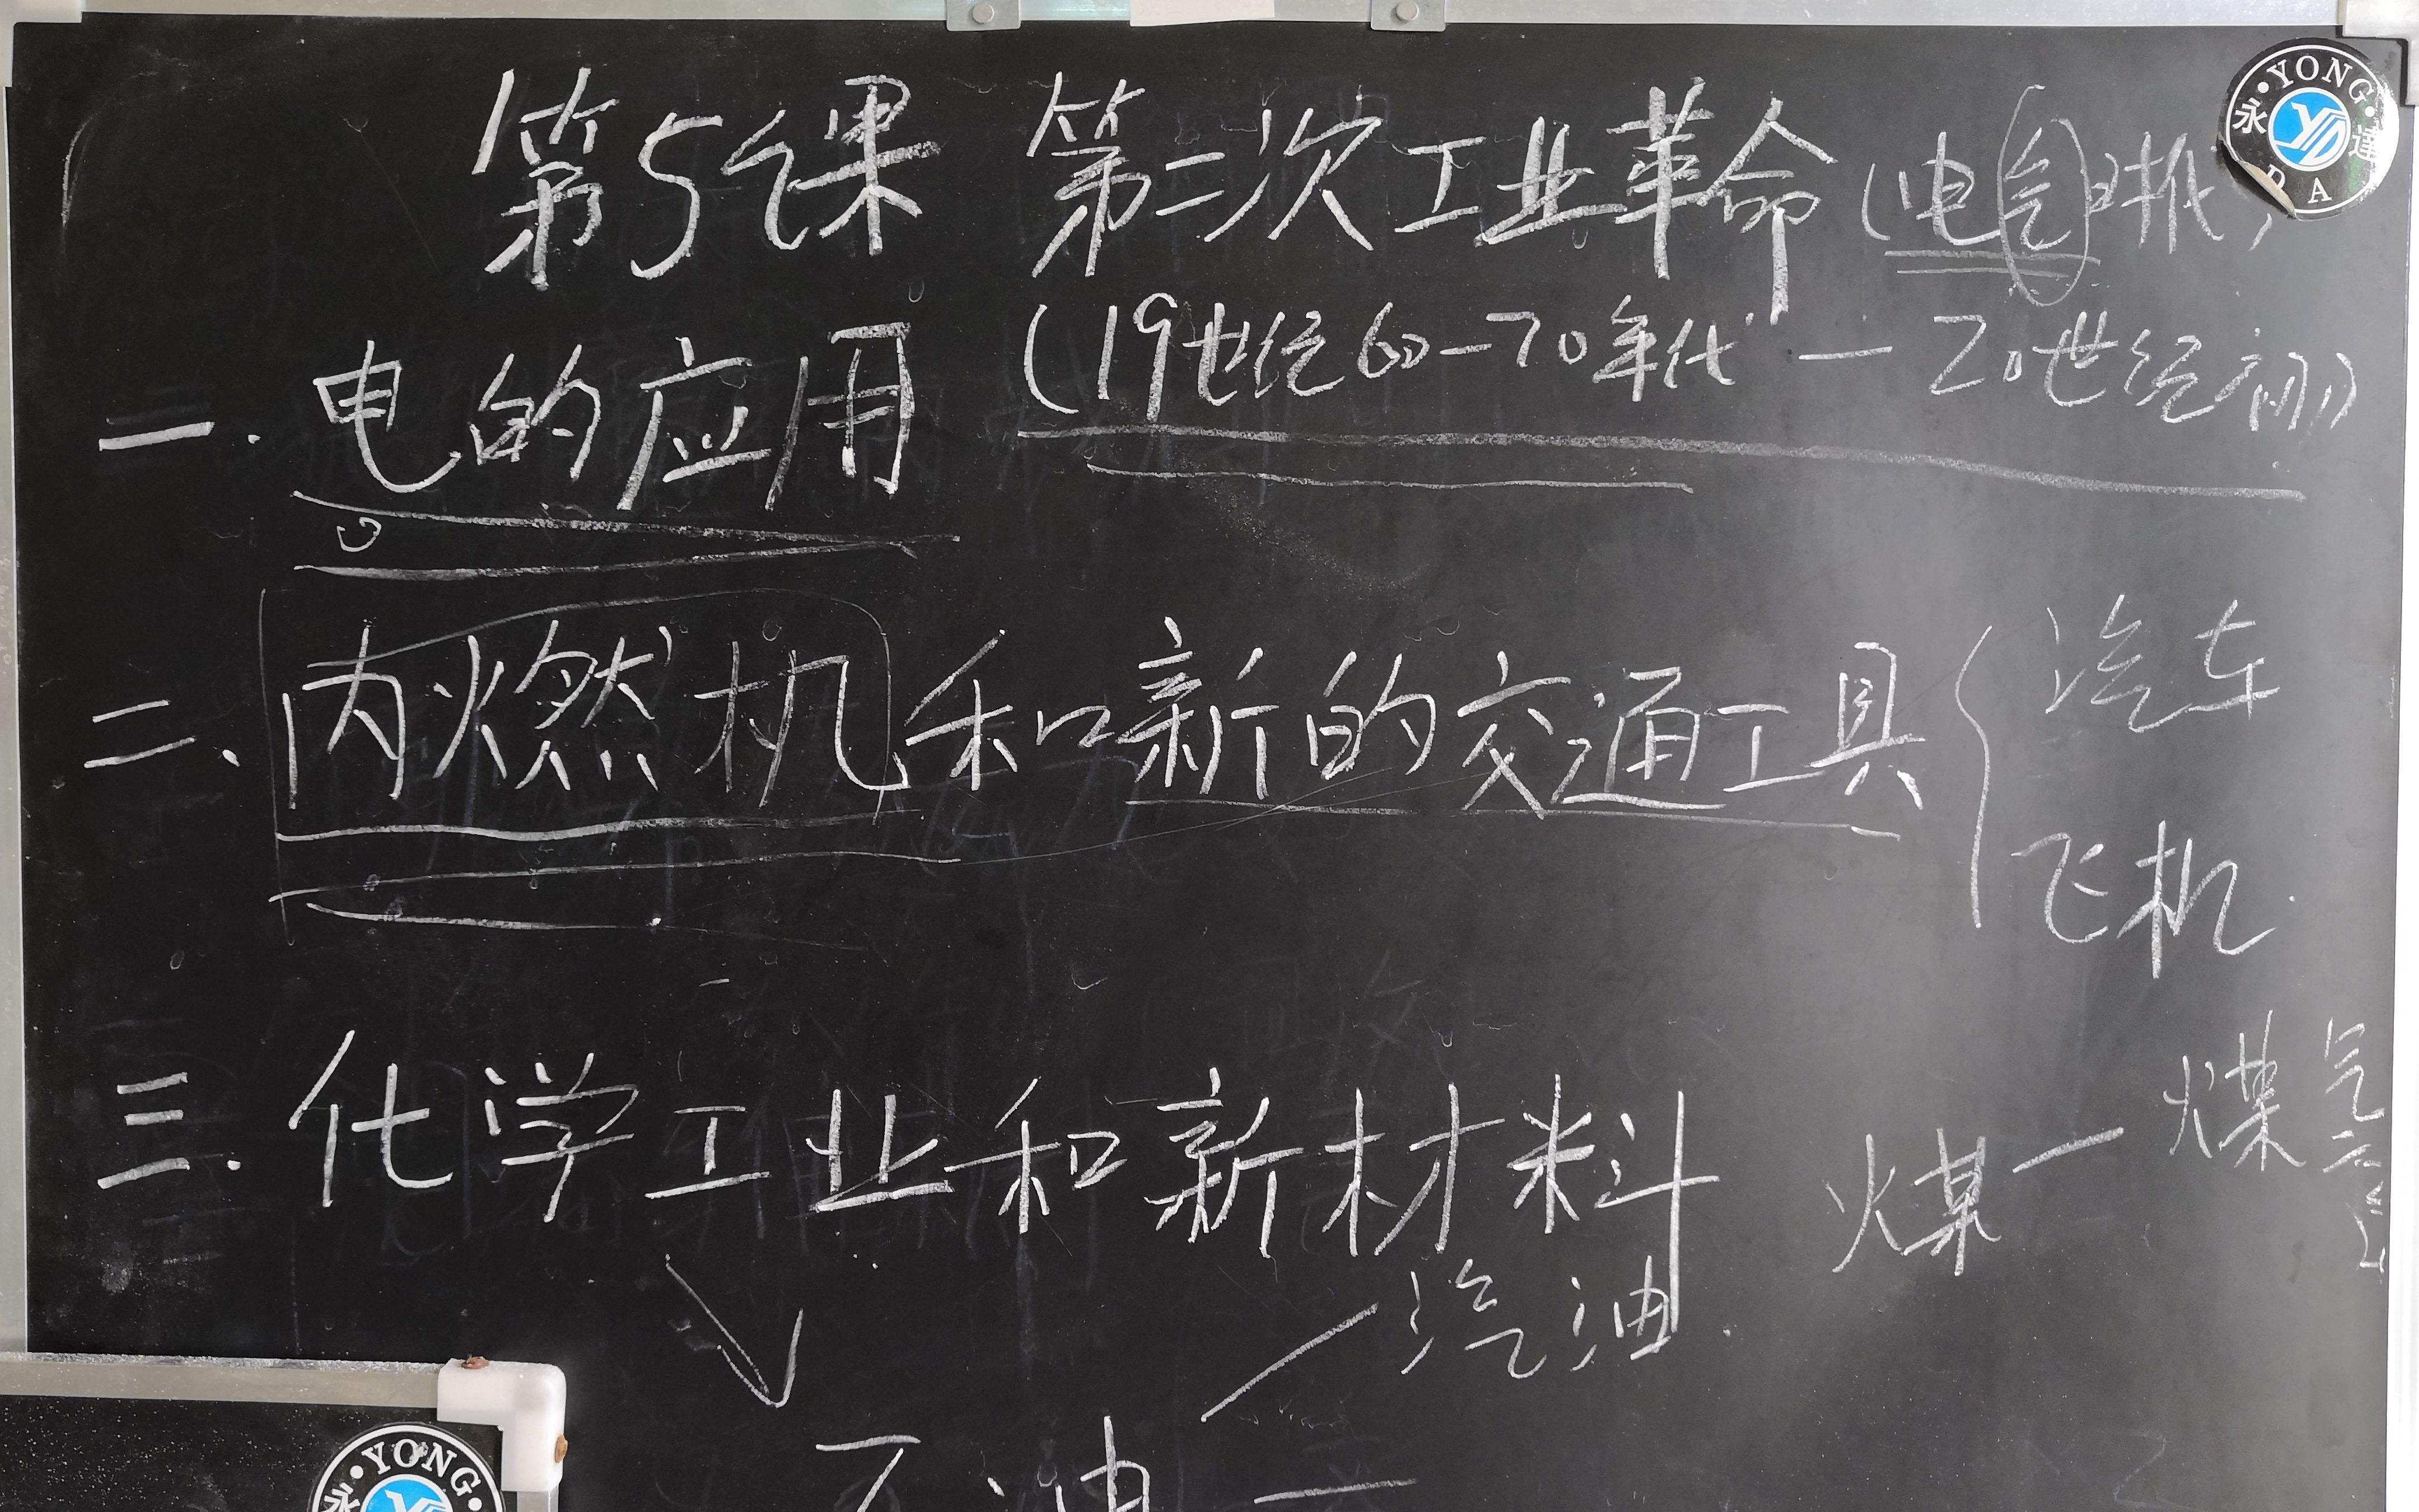 第5课 第二次工业革命(电气时代)
(19世纪60-70年代 — 20世纪初)
一.电的应用
二、内燃机和新的交通工具{汽车
飞机
三.化学工业和新材料
煤—煤气
汽油
石油—
YONG DA 永达
YONG